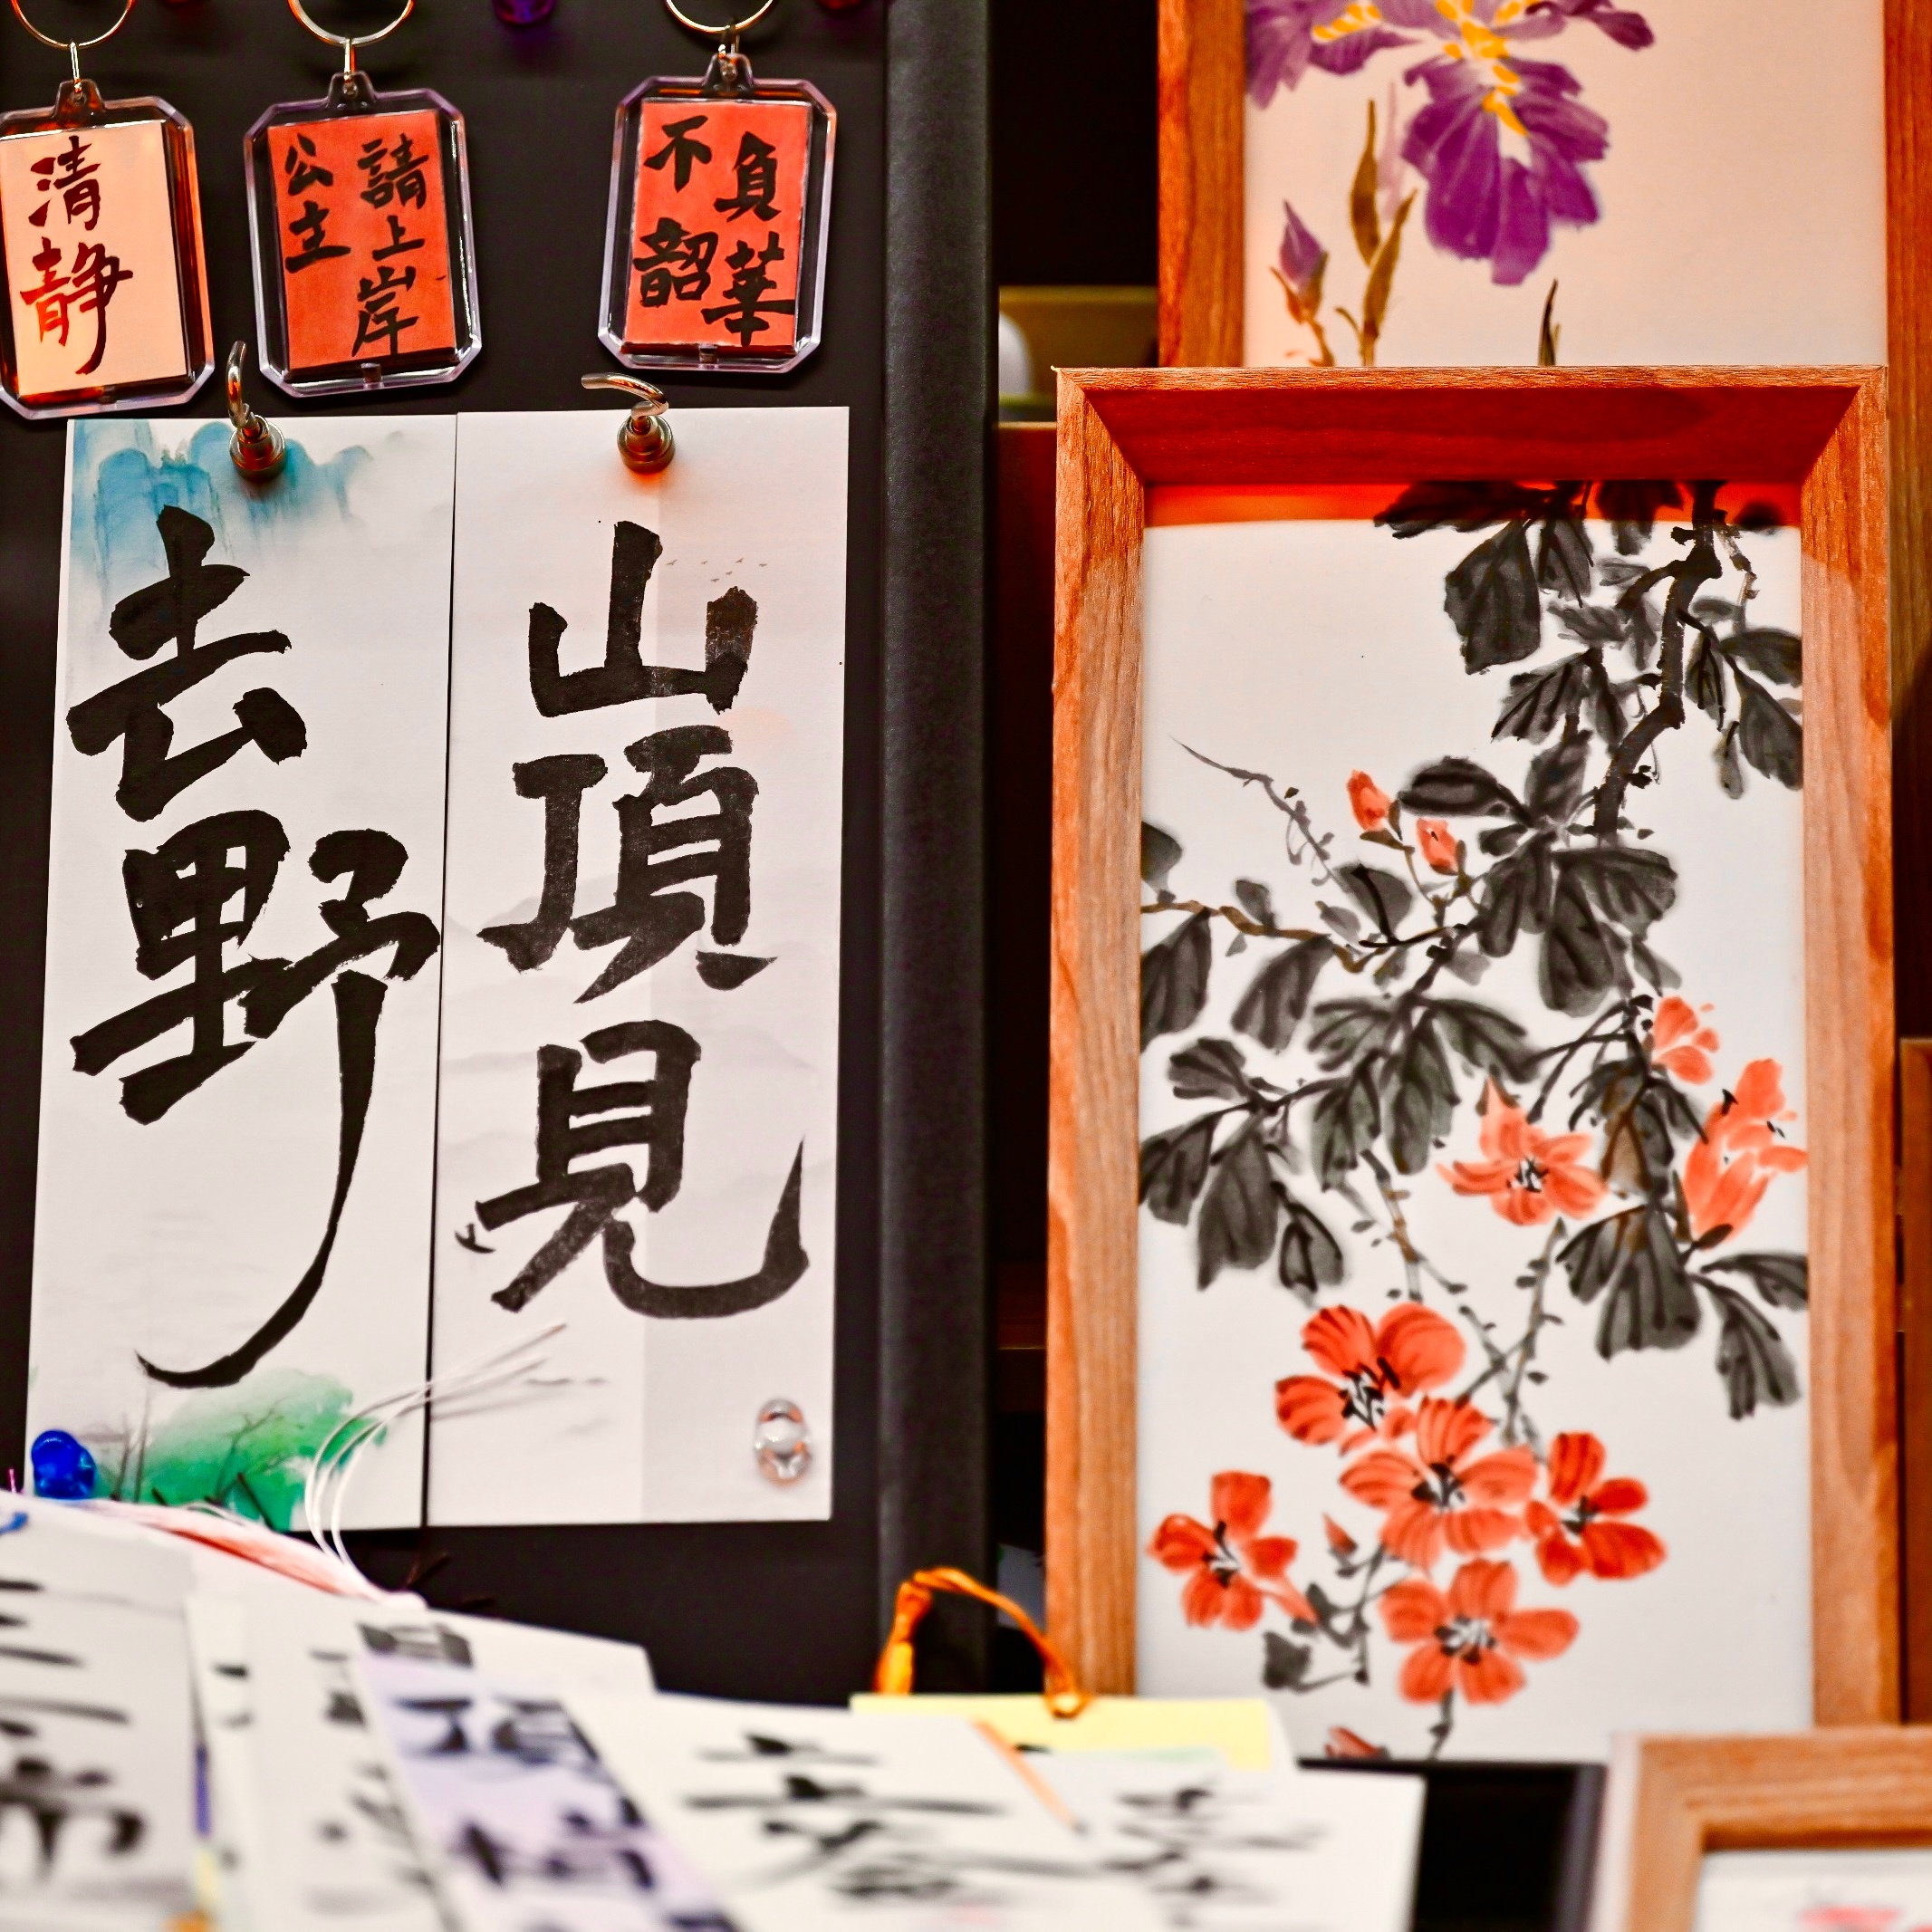 清靜
請上岸
公主
不負
韶華
去野
山頂見